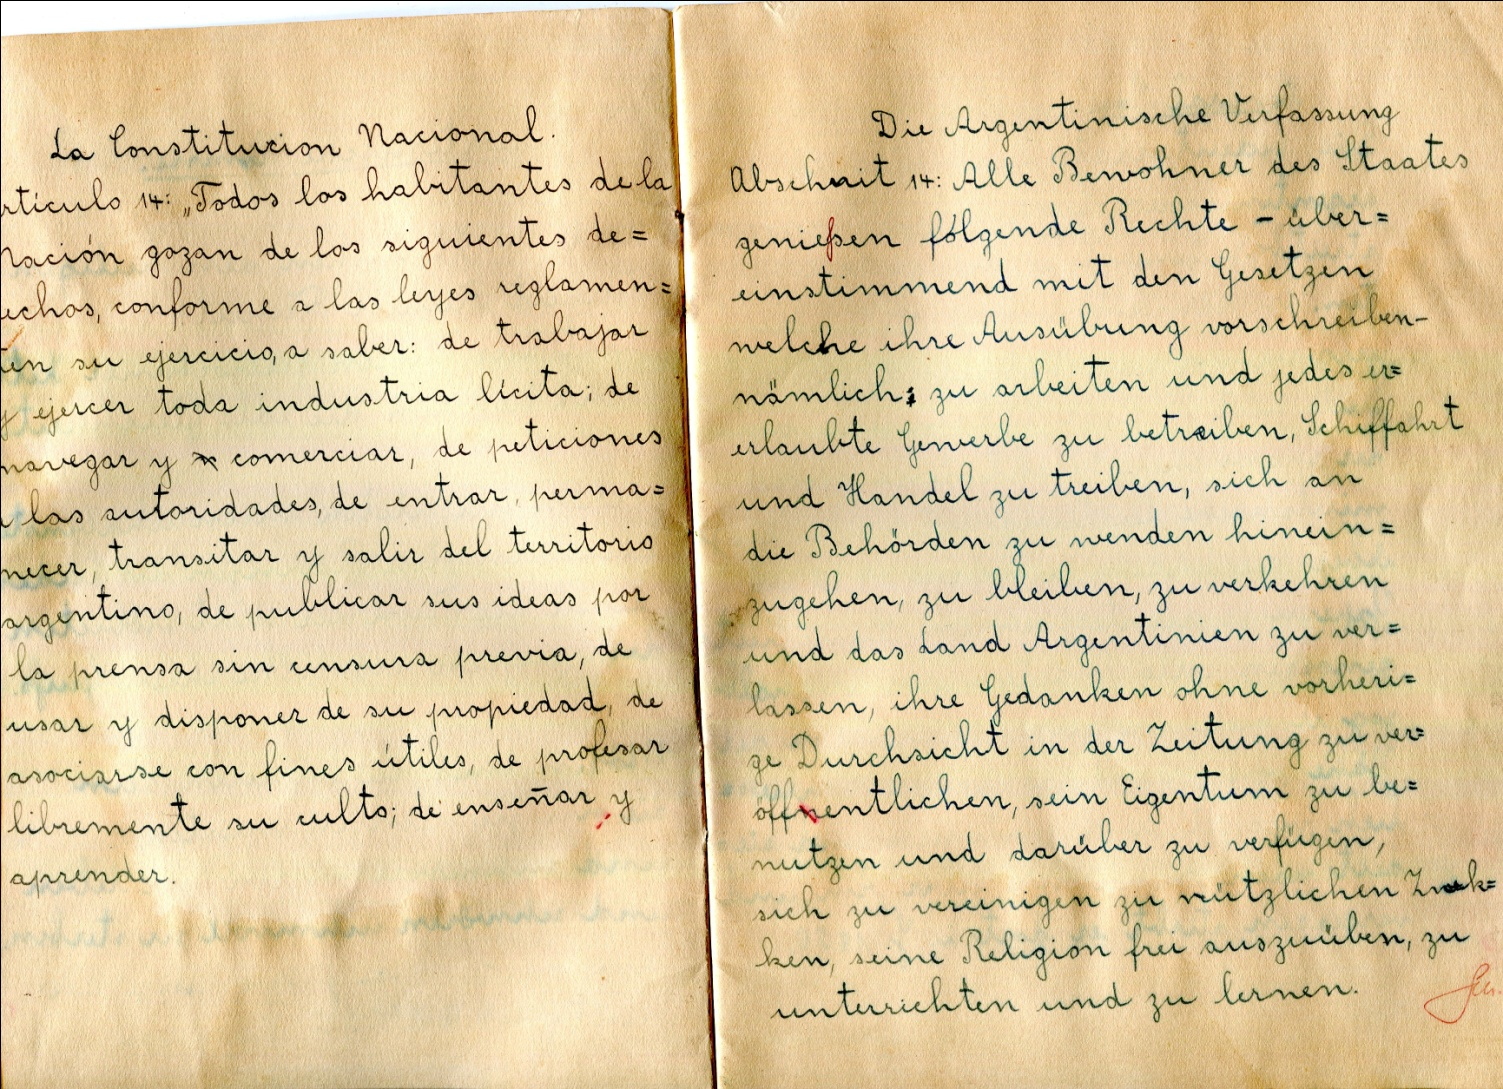 La Constitucion Nacional.
rtículo 14: „Todos los habitantes de la
Nación gozan de los siguientes de=
echos, conforme a las leyes reglamen=
ten su ejercicio, a saber: de trabajar
y ejercer toda industria lícita; de
navegar y comerciar, de peticiones
a las autoridades, de entrar, perma=
necer, transitar y salir del territorio
argentino, de publicar sus ideas por
la prensa sin censura previa, de
usar y disponer de su propiedad, de
asociarse con fines útiles, de profesar
libremente su culto; de enseñar y
aprender.
Die Argentinische Verfassung
Abschnit 14: Alle Bewohner des Staates
genießen folgende Rechte – über=
einstimmend mit den Gesetzen
welche ihre Ausübung vorschreiben–
nämlich: zu arbeiten und jedes er=
erlaubte Gewerbe zu betreiben, Schiffahrt
und Handel zu treiben, sich an
die Behörden zu wenden hinein=
zugehen, zu bleiben, zu verkehren
und das Land Argentinien zu ver=
lassen, ihre Gedanken ohne vorheri=
ge Durchsicht in der Zeitung zu ver=
öffnentlichen, sein Eigentum zu be=
nutzen und darüber zu verfügen,
sich zu vereinigen zu nützlichen Zwek=
ken, seine Religion frei auszuüben, zu
unterrichten und zu lernen.